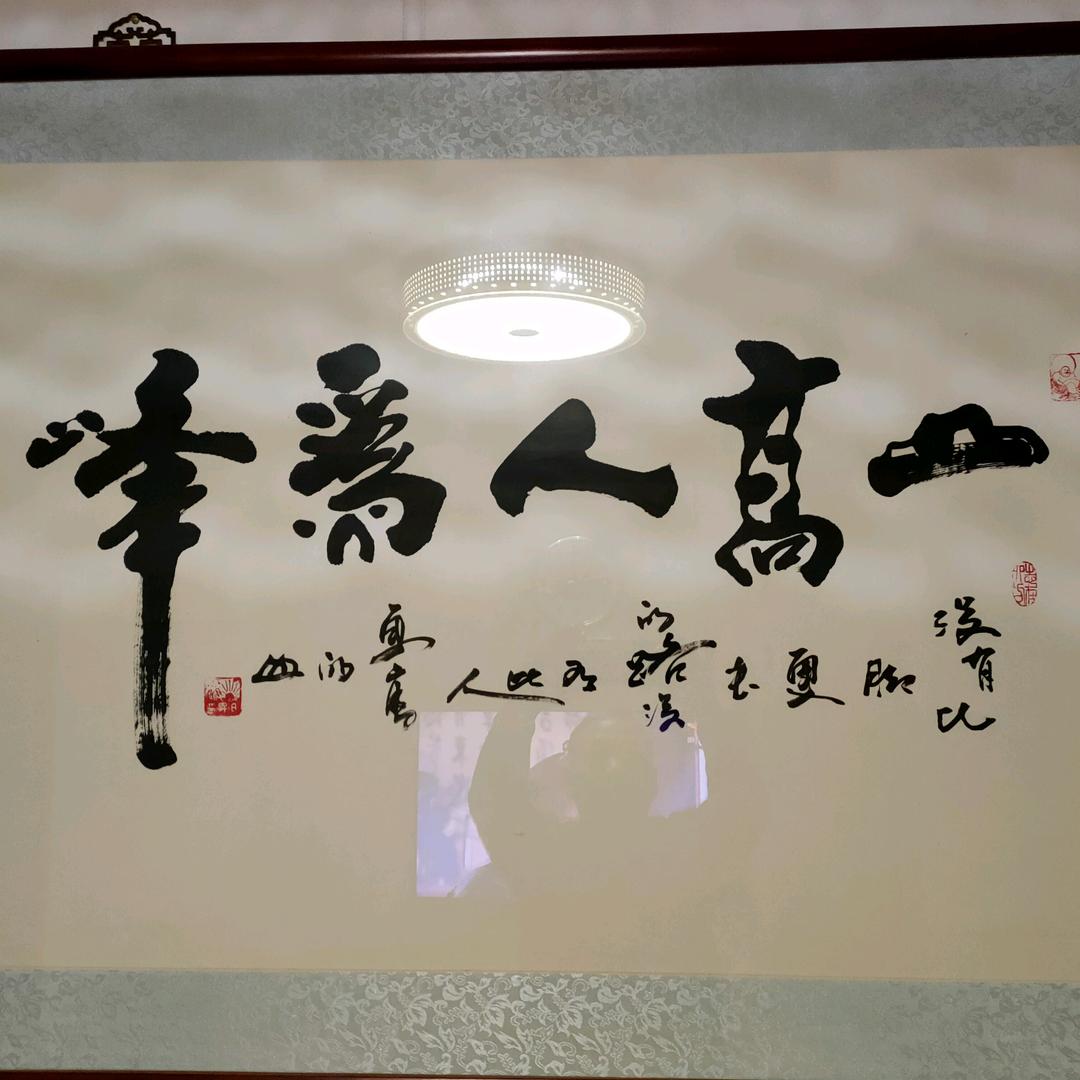 山高人為峰
没有比脚更长的路没有比人更高的山